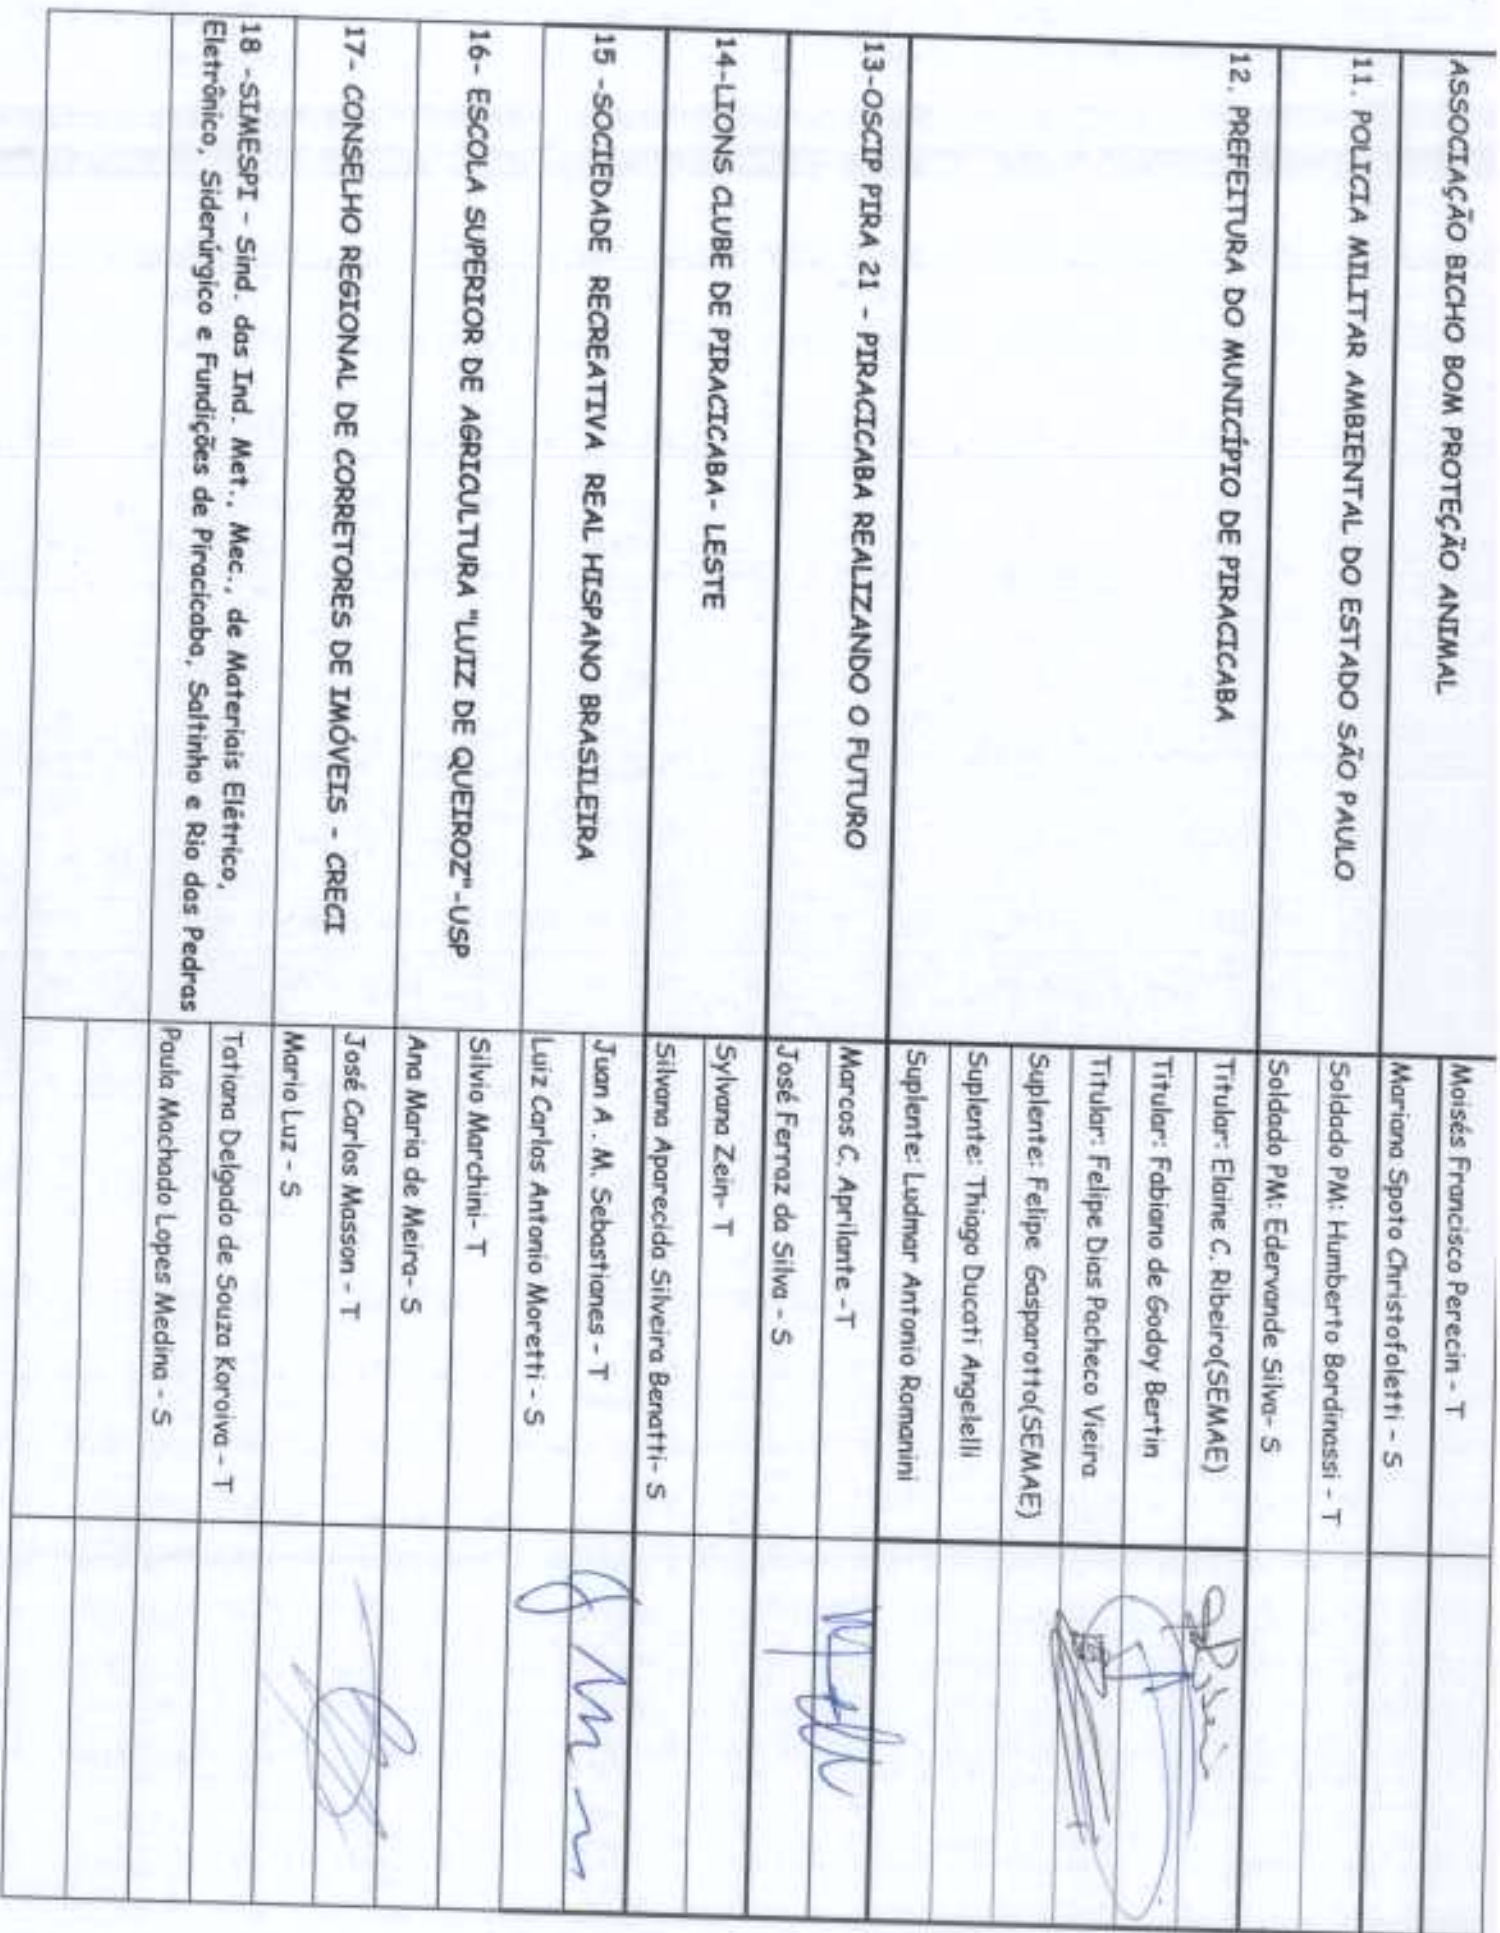 ASSOCIAÇÃO BICHO BOM PROTEÇÃO ANIMAL
Moisés Francisco Perecin - T
Mariana Spoto Christofoletti - S
11. POLICIA MILITAR AMBIENTAL DO ESTADO SÃO PAULO
Soldado PM: Humberto Bordinassi - T
Soldado PM: Edervande Silva- S
12. PREFEITURA DO MUNICÍPIO DE PIRACICABA
Titular: Elaine C. Ribeiro(SEMAE)
Titular: Fabiano de Godoy Bertin
Titular: Felipe Dias Pacheco Vieira
Suplente: Felipe Gasparotto(SEMAE)
Suplente: Thiago Ducati Angelelli
Suplente: Ludmar Antonio Romanini
13-OSCIP PIRA 21 - PIRACICABA REALIZANDO O FUTURO
Marcos C. Aprilante -T
José Ferraz da Silva - S
14-LIONS CLUBE DE PIRACICABA- LESTE
Sylvana Zein- T
Silvana Aparecida Silveira Benatti- S
15 -SOCIEDADE RECREATIVA REAL HISPANO BRASILEIRA
Juan A . M. Sebastianes - T
Luiz Carlos Antonio Moretti - S
16- ESCOLA SUPERIOR DE AGRICULTURA "LUIZ DE QUEIROZ"-USP
Silvio Marchini- T
Ana Maria de Meira- S
17- CONSELHO REGIONAL DE CORRETORES DE IMÓVEIS - CRECI
José Carlos Masson - T
Mario Luz - S
18 -SIMESPI - Sind. das Ind. Met., Mec., de Materiais Elétrico,
Eletrônico, Siderúrgico e Fundições de Piracicaba, Saltinho e Rio das Pedras
Tatiana Delgado de Souza Koroiva - T
Paula Machado Lopes Medina - S